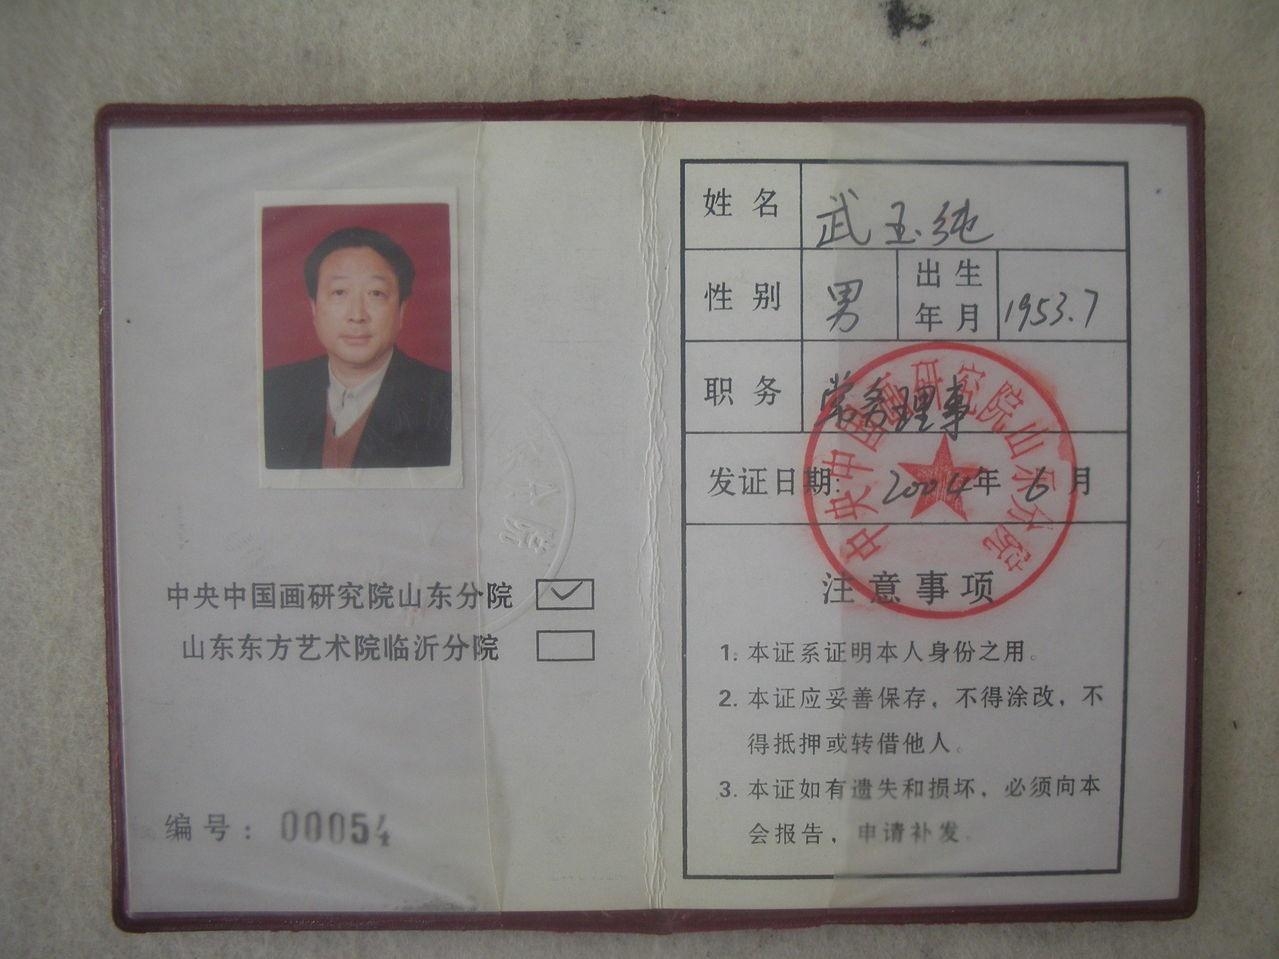 中央中国画研究院山东分院
山东东方艺术院临沂分院
编号：00054
姓名 武玉纯
性别 男 出生年月 1953.7
职务 常务理事
发证日期: 2004年6月
中央中国画研究院山东分院
注意事项
1. 本证系证明本人身份之用。
2. 本证应妥善保存，不得涂改，不
得抵押或转借他人。
3. 本证如有遗失和损坏，必须向本
会报告，申请补发。